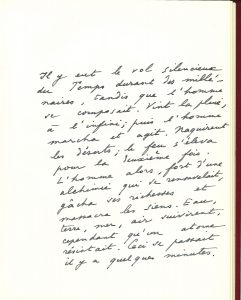 Il y eut le vol silencieux
du Temps durant des millé-
naires, tandis que l'homme
se composait. Vint la pluie,
à l'infini; puis l'homme
marcha et agit. Naquirent
les déserts; le feu s'éleva
pour la deuxième fois.
L'homme alors, fort d'une
alchimie qui se renouvelait,
gâcha ses richesses et
massacra les siens. Eau,
terre, mer, air suivirent,
cependant qu'un atome
résistait. Ceci se passait
il y a quelques minutes.